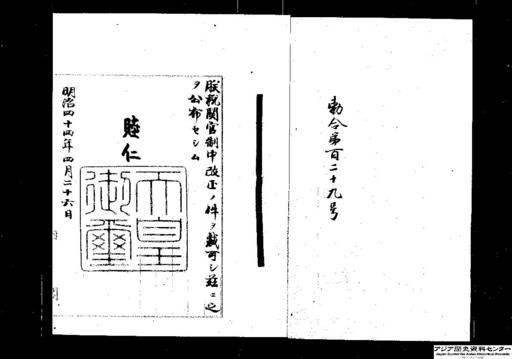 勅令第百二十九号
朕税関官制中改正ノ件ヲ裁可シ茲ニ之
ヲ公布セシム
睦仁
天皇御璽
明治四十四年四月二十六日
アジア歴史資料センター
Japan Center for Asian Historical Records